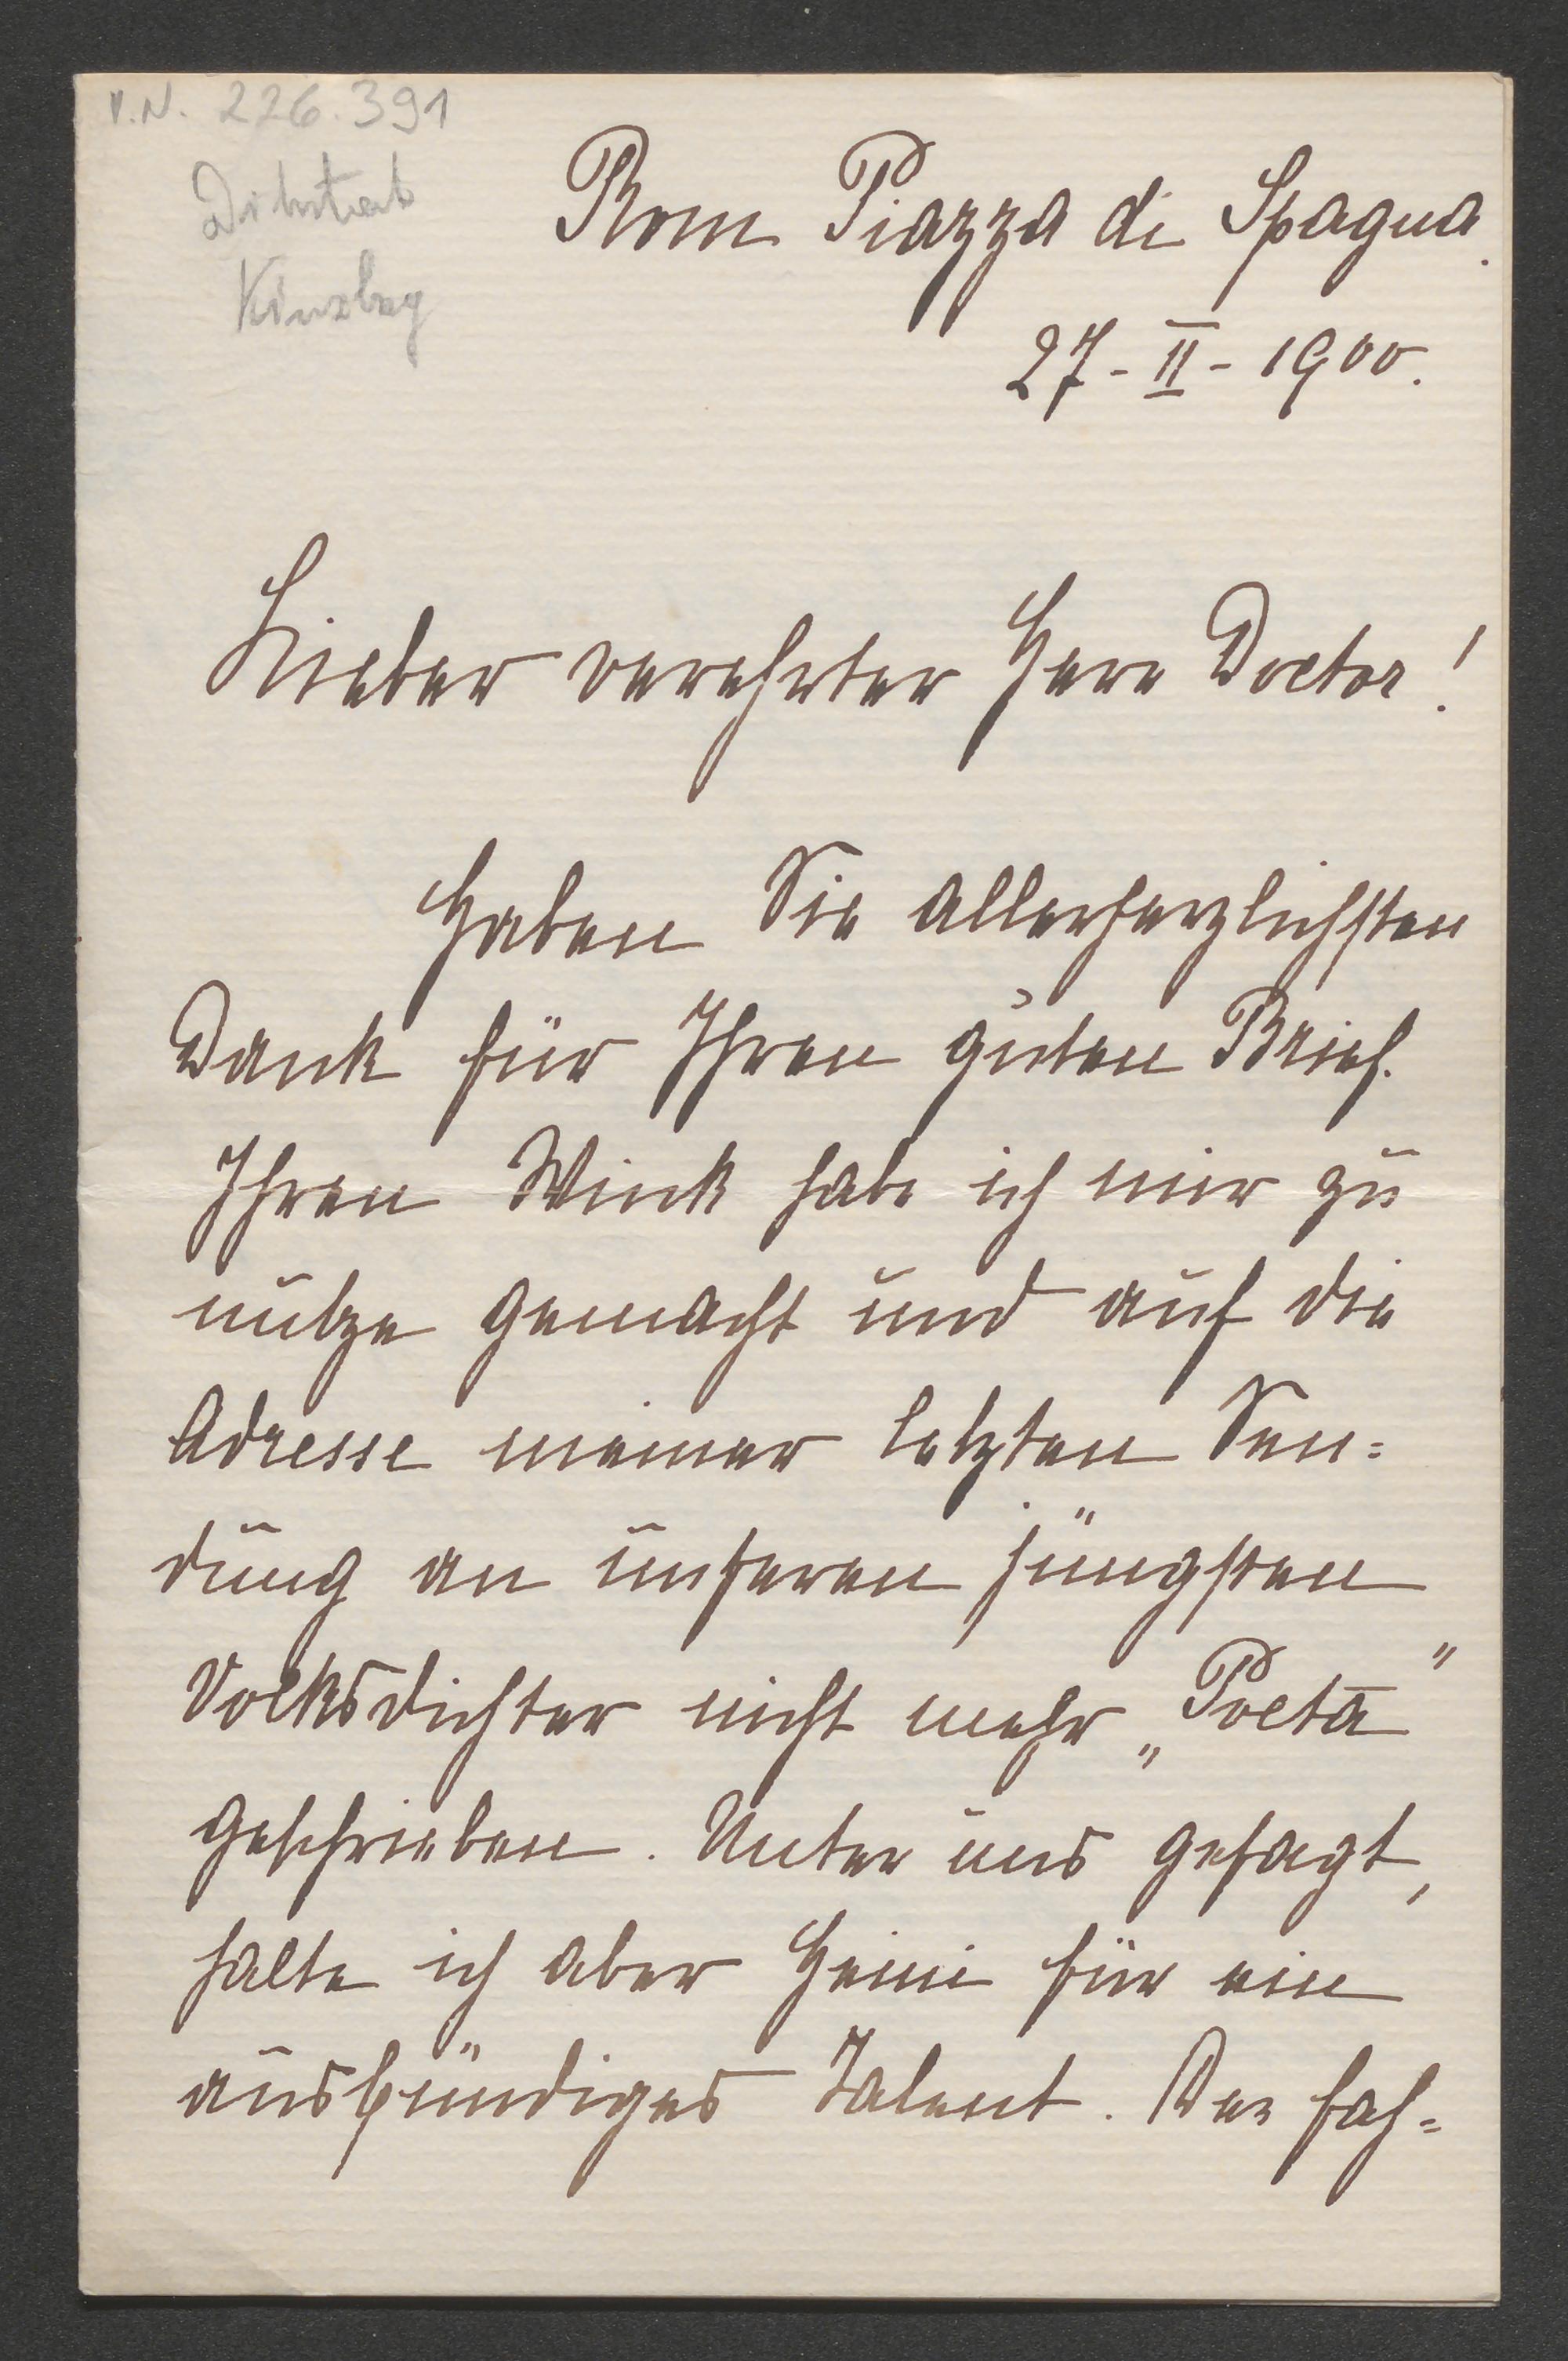 V.N. 226.391
Rom Piazza di Spagna.
27-II-1900.
Lieber verehrter Herr Doctor!
Haben Sie allerherzlichsten
Dank für Ihren guten Brief.
Ihren Wink habe ich mir zu
nutze gemacht und auf die
Adresse meiner letzten Sen=
dung an unseren jüngsten
Volksdichter nicht mehr „Poeta"
geschrieben. Unter uns gesagt,
halte ich aber Heini für ein
ausbündiges Talent. Der fah=